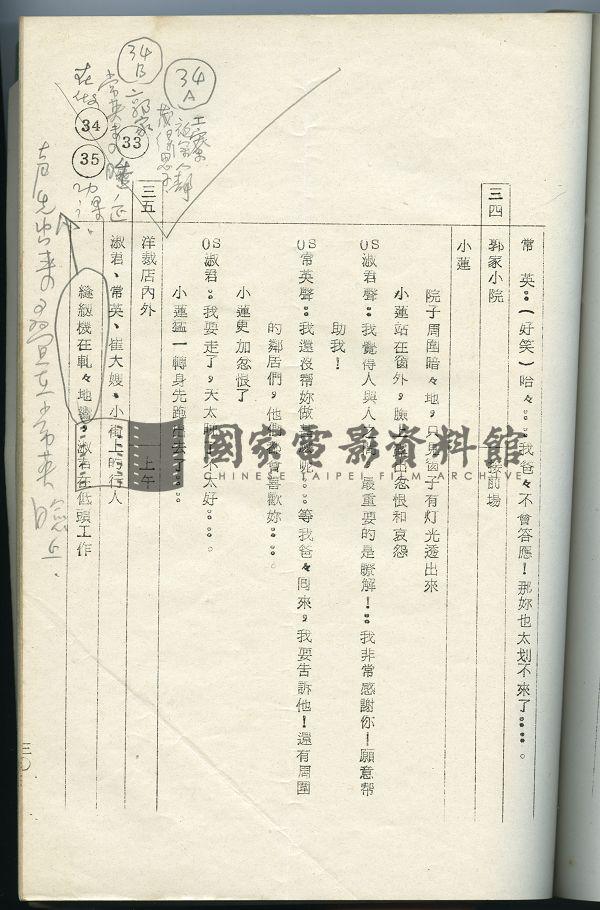 常　英：：（好笑）哈々：：我爸々不會答應！那妳也太划不來了：：：。
三四　郭家小院　　接前場
小蓮
院子周圍暗々地，只見窗子有灯光透出來
小蓮站在窗外，臉上露出忿恨和哀怨
OS淑君聲：：我覺得人與人之間，最重要的是瞭解！：：我非常感謝你！願意帮
助我！
OS常英聲：：我還沒幫妳做甚麼呢！：：等我爸々回來，我要告訴他！還有周圍
的鄰居們，他們都會喜歡妳：：：。
小蓮更加忿恨了
OS淑君：：我要走了，太太
小蓮猛一轉身先跑出去了：：：
三五　洋裁店內外　　上午
淑君、常英、崔大嫂、小街上的行人
縫級機在軋々地響，淑君在低頭工作
三〇
34 A
工寮
34 B
郭家
33
34
35
國家電影資料館
CHINESE TAIPEI FILM ARCHIVE